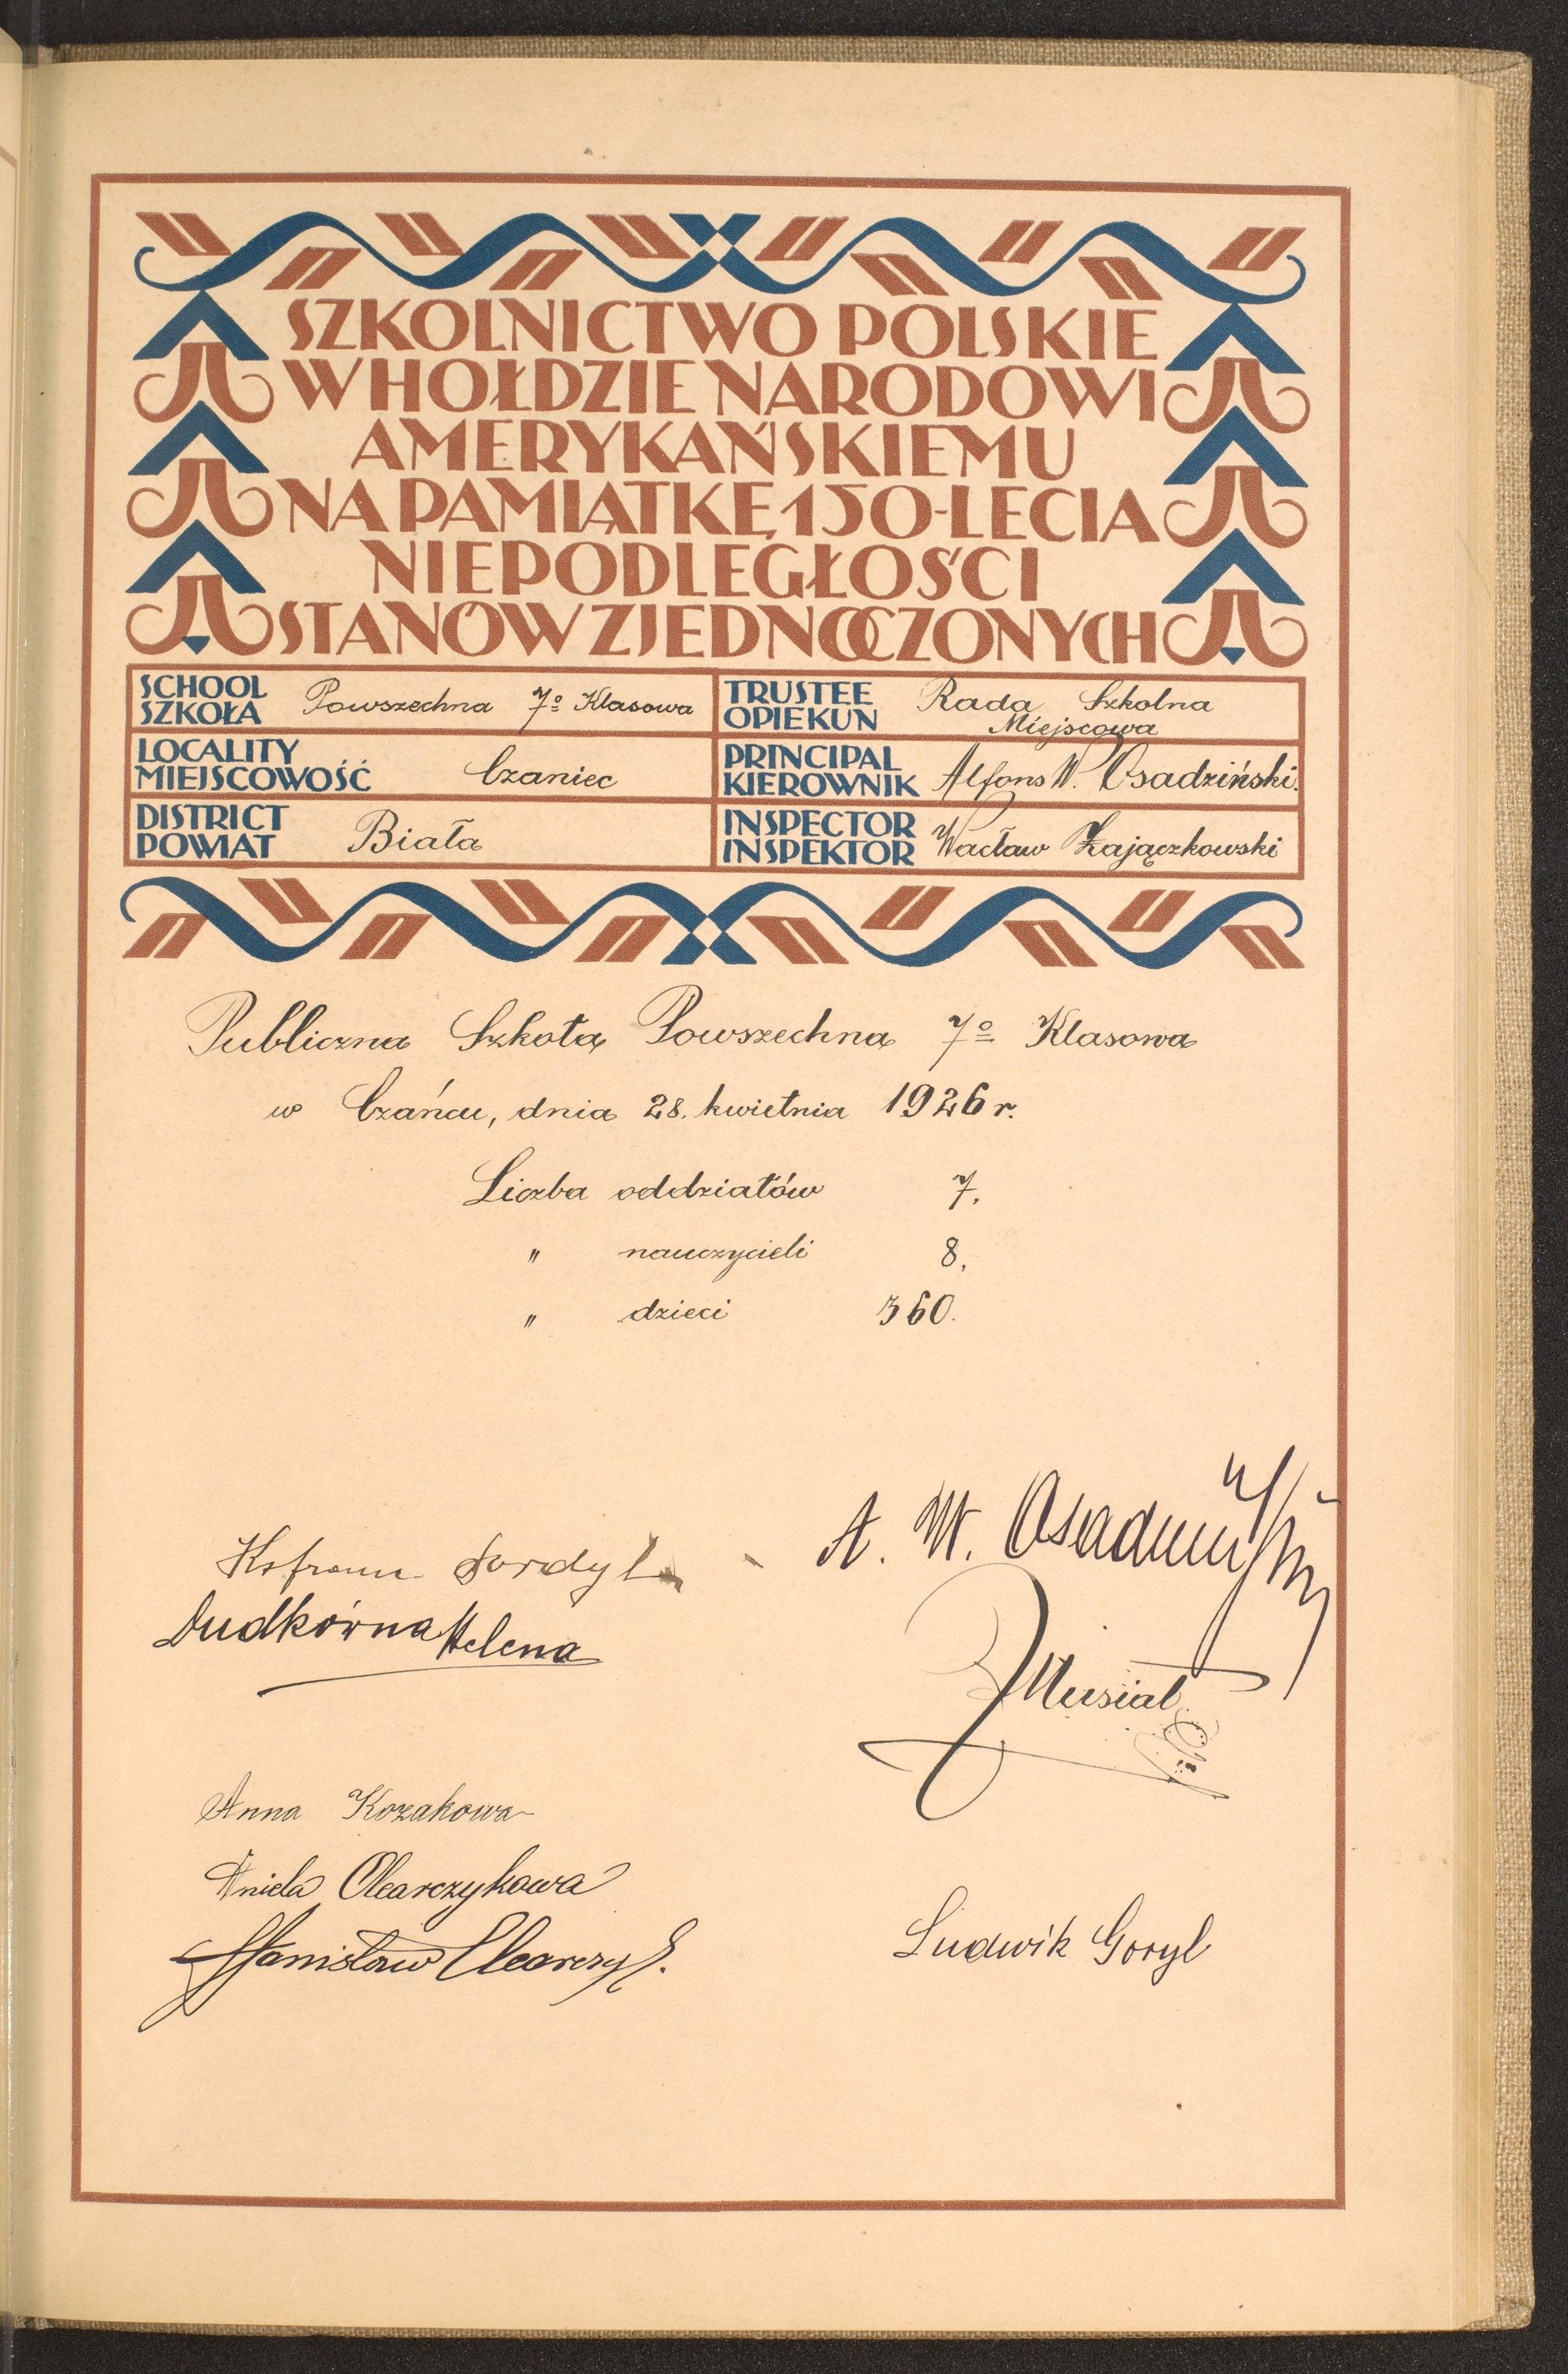 SZKOLNICTWO POLSKIE
W HOŁDZIE NARODOWI
AMERYKAŃSKIEMU
NA PAMIĄTKĘ 150-LECIA
NIEPODLEGŁOŚCI
STANÓW ZJEDNOCZONYCH
SCHOOL
SZKOŁA Powszechna 7º Klasowa
TRUSTEE
OPIEKUN Rada Szkolna
Miejscowa
LOCALITY
MIEJSCOWOŚĆ Czaniec
PRINCIPAL
KIEROWNIK Alfons W. Osadziński.
DISTRICT
POWIAT Biała
INSPECTOR
INSPEKTOR Wacław Zajączkowski
Publiczna Szkoła Powszechna 7º Klasowa
w Czańcu, dnia 28. kwietnia 1926 r.
Liczba oddziałów 7.
" nauczycieli 8.
" dzieci 360.
A. W. Osadziński
Sordyl
Dudkówna Helena
Musiał
Anna Kozakowa
Aniela Olearczykowa
Stanisław Olearczyk.
Ludwik Goryl